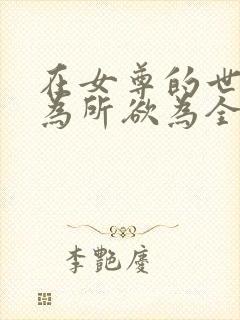 在女尊的世
為所欲為全
李艷慶